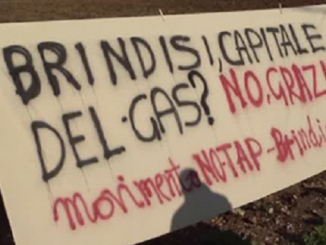 BRINDISI, CAPITALE
DEL GAS? NO, GRAZI
movimento NO-TAP-Brindi